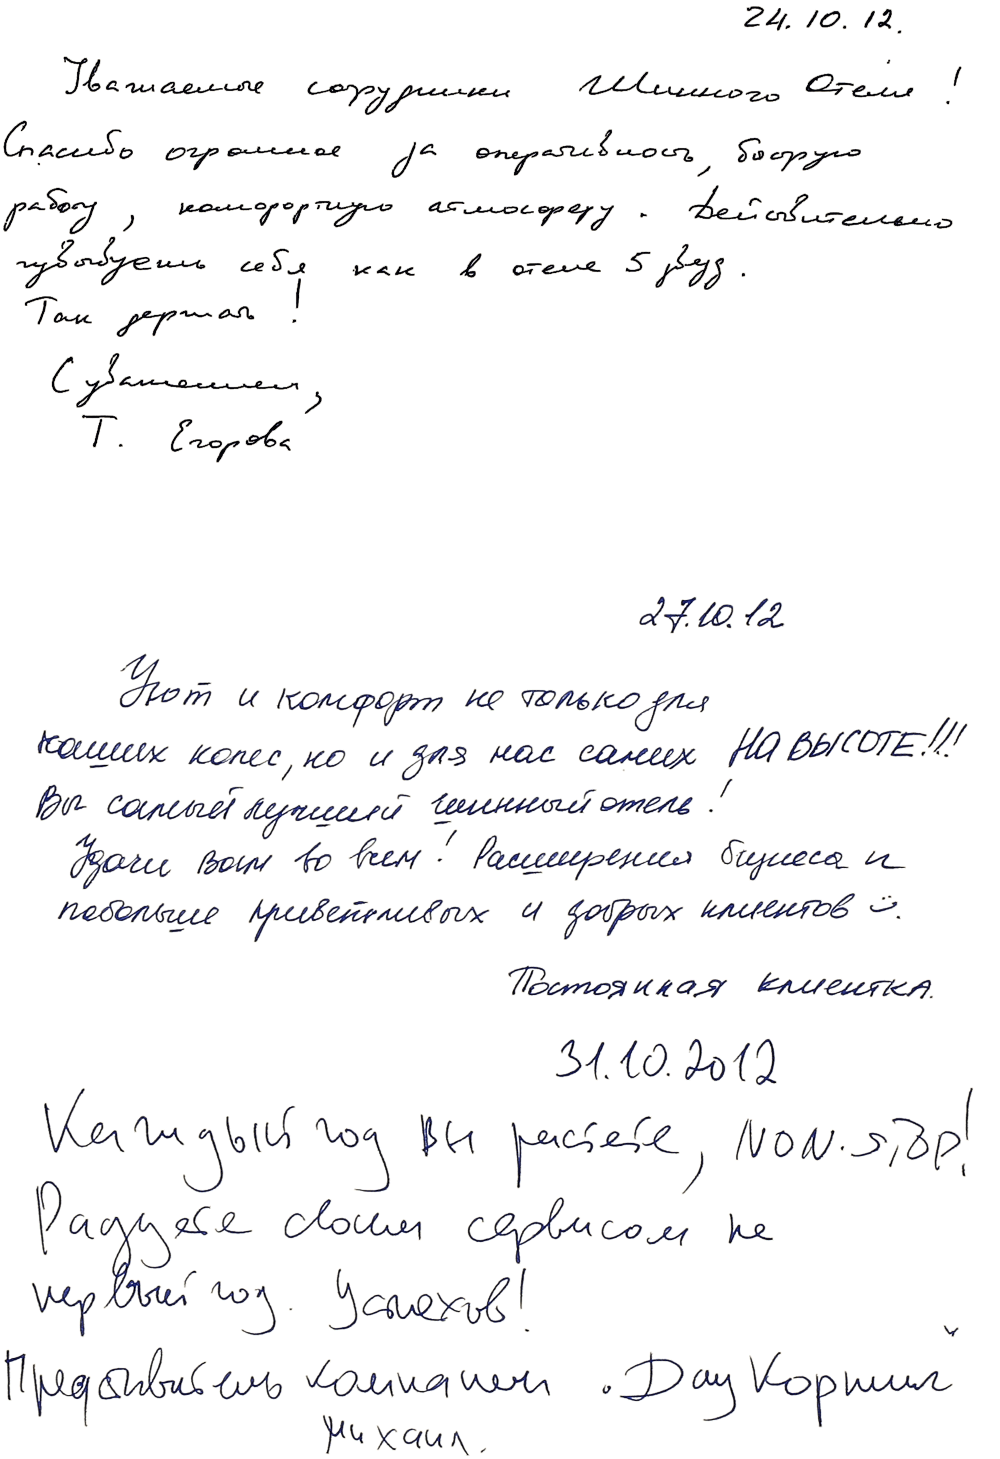 24.10.12.
Уважаемые сотрудники Шинного Отеля!
Спасибо огромное за оперативность, быструю
работу, комфортную атмосферу. Действительно
чувствуешь себя как в отеле 5 звезд.
Так держать!
С уважением,
Т. Егорова
27.10.12
Уют и комфорт не только для
наших колес, но и для нас самих НА ВЫСОТЕ!!!
Вы самый лучший шинный отель!
Удачи Вам во всем! Расширения бизнеса и
побольше приветливых и добрых клиентов
Постоянная клиентка.
31.10.2012
Каждый год Вы растете, NON-STOP!
Радуете своим сервисом не
первый год. Успехов!
Представитель компании
Михаил.